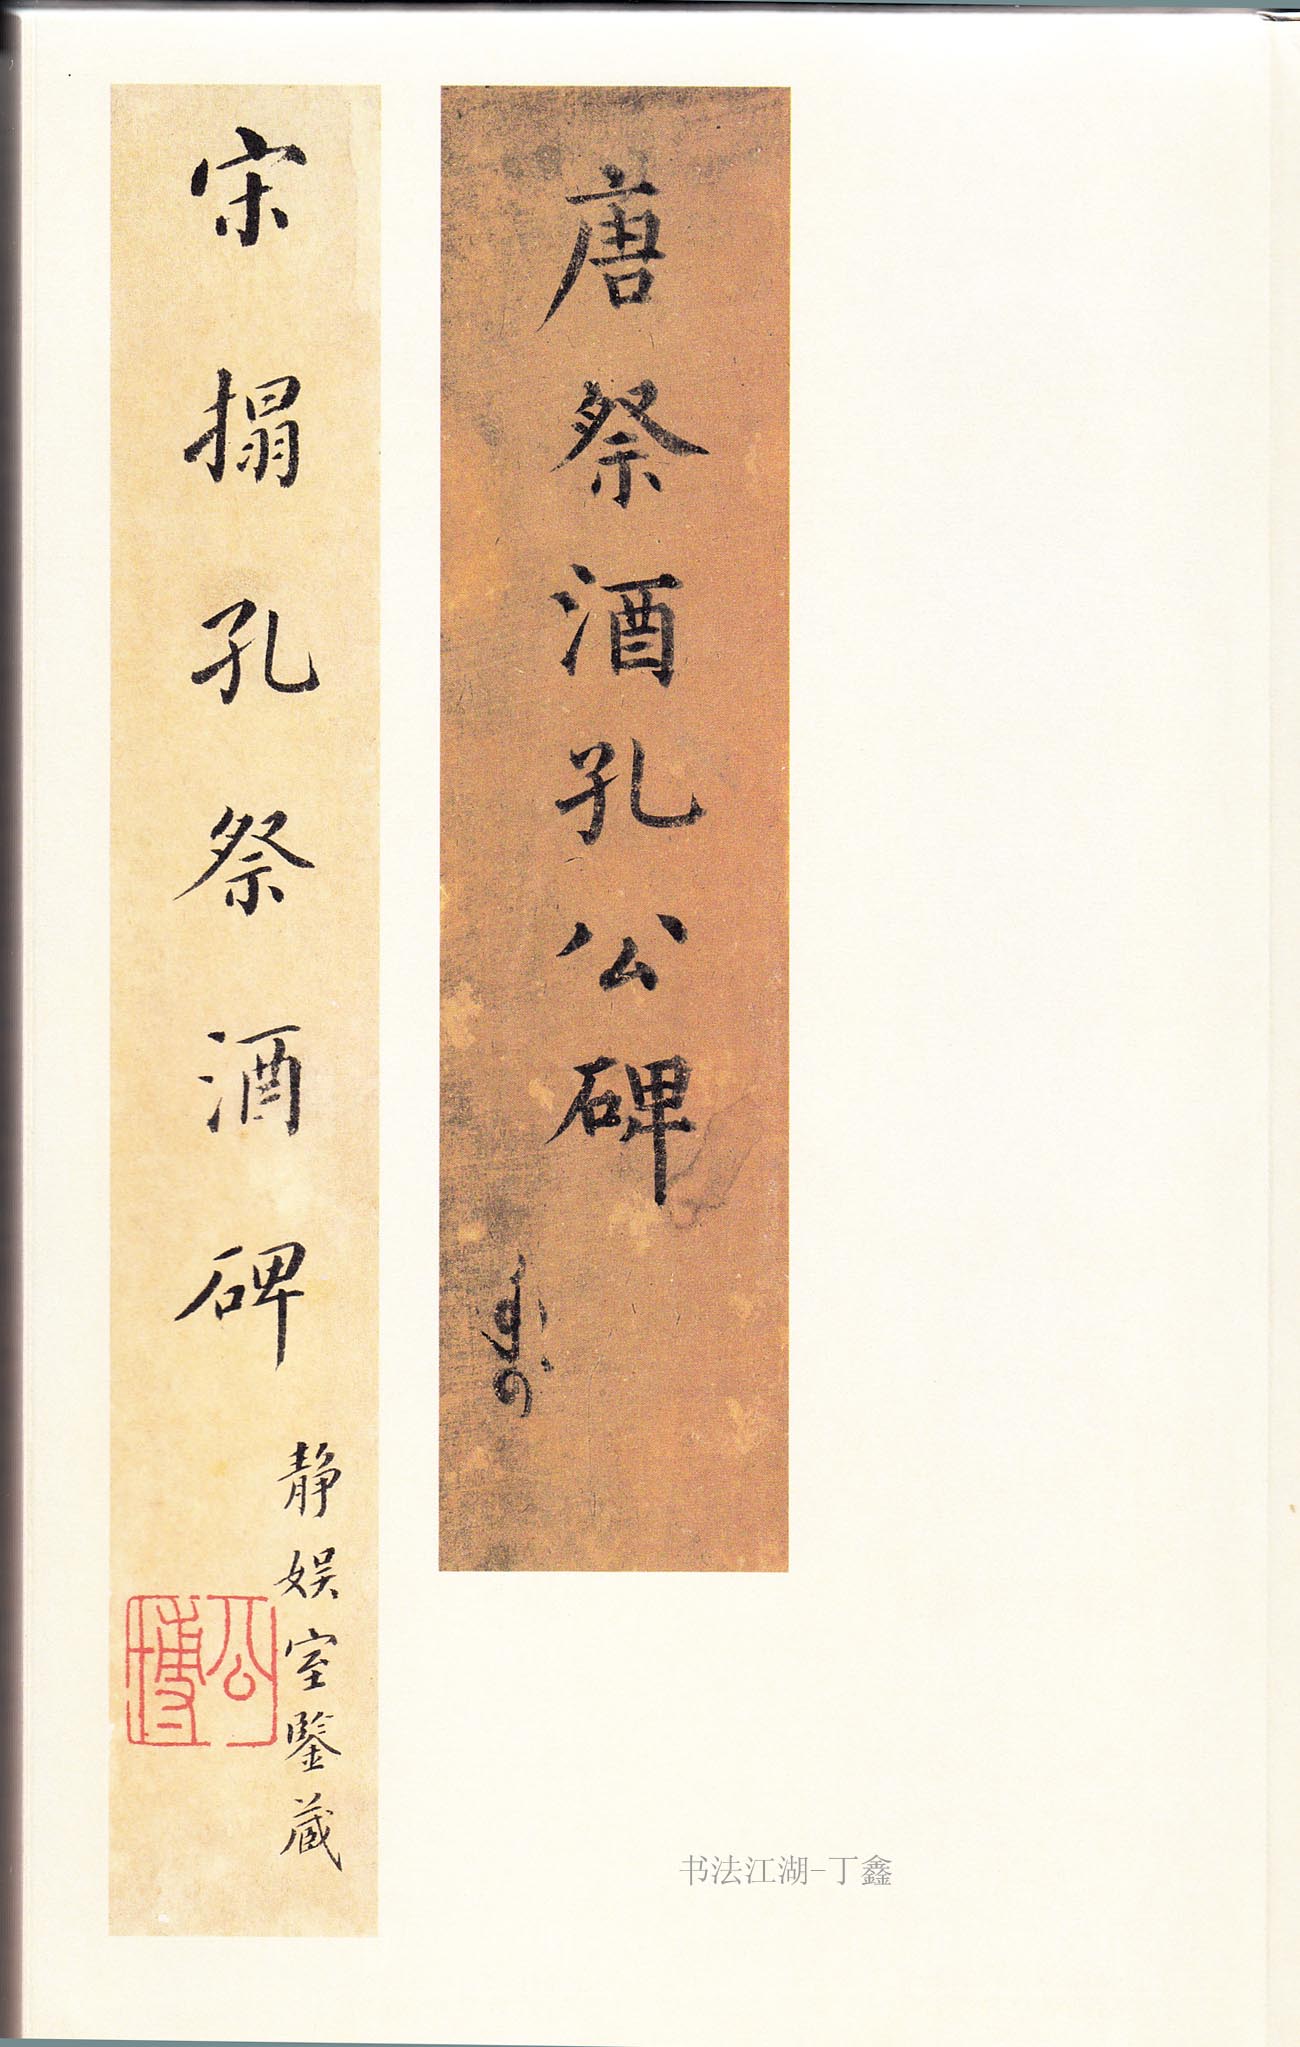 唐祭酒孔公碑
宋搨孔祭酒碑
静娱室鑒藏
公博
书法江湖-丁鑫